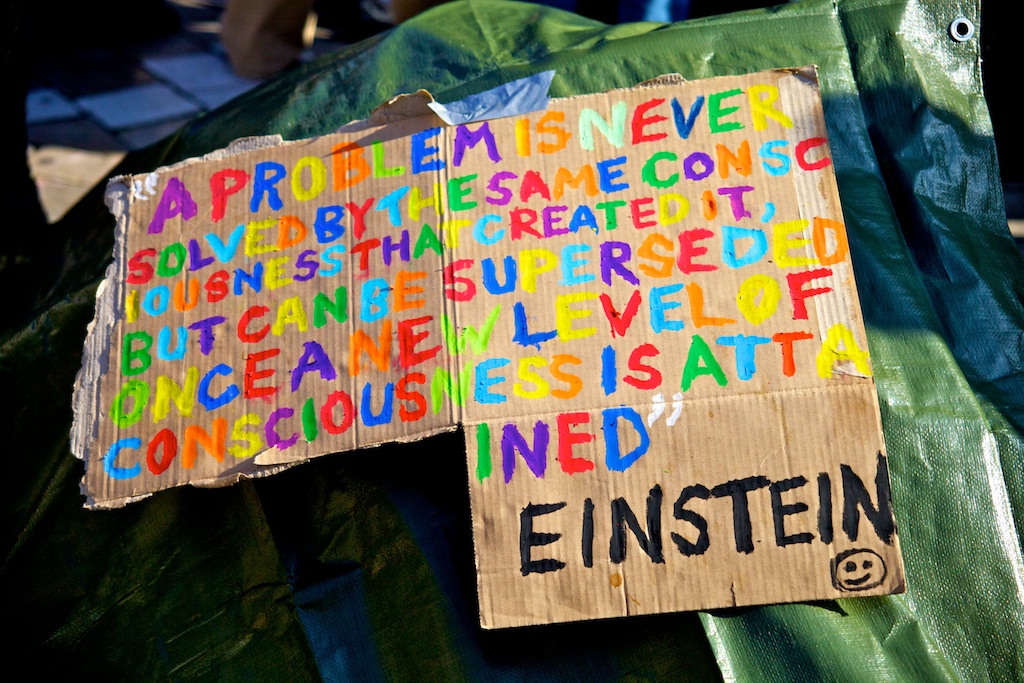 "A PROBLEM IS NEVER
SOLVED BY THE SAME CONSC
IOUSNESS THAT CREATED IT,
BUT CAN BE SUPERSEDED
ONCE A NEW LEVEL OF
CONSCIOUSNESS IS ATTA
INED"
EINSTEIN